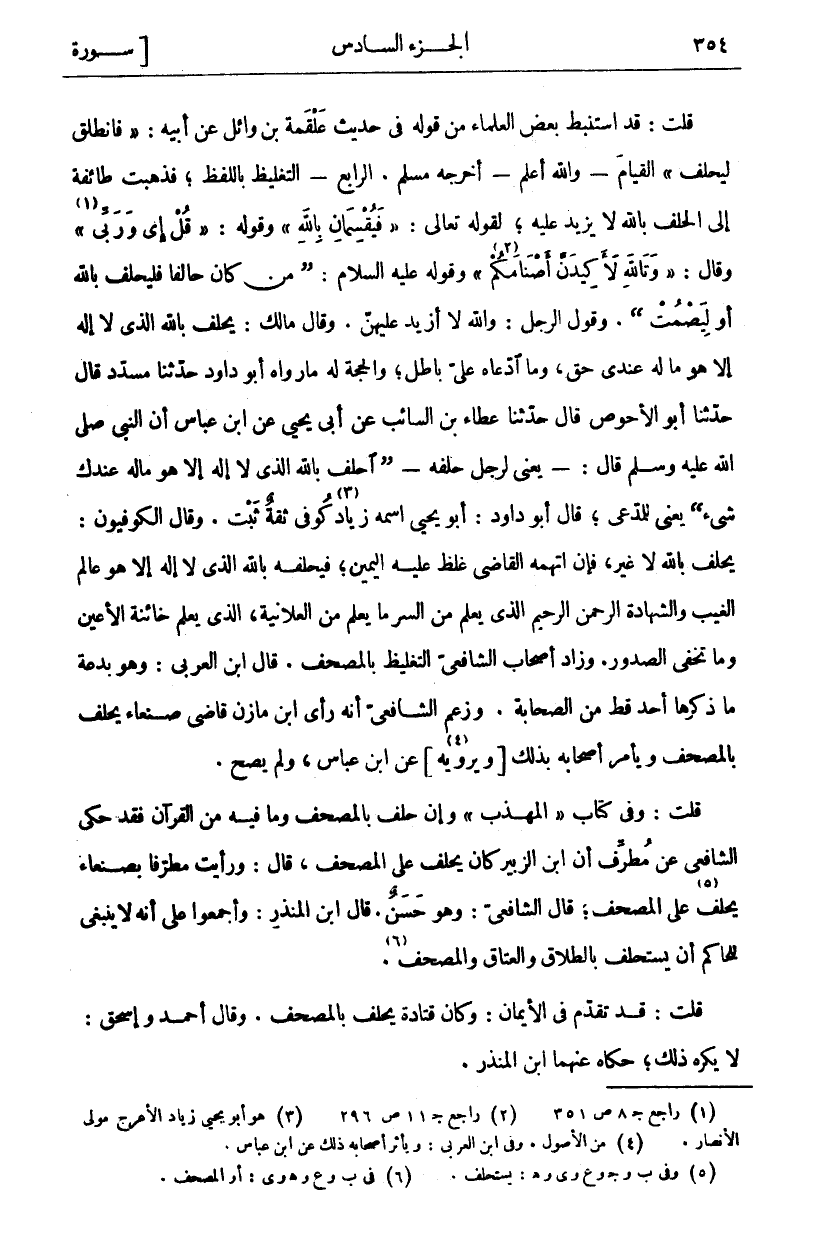 ٣٥٤ الجزء السادس [ سورة
قلت : قد استنبط بعض العلماء من قوله فى حديث عَلْقَمة بن وائل عن أبيه : « فانطلق
ليحلف » القيامَ — والله أعلم — أخرجه مسلم . الرابع — التغليظ باللفظ ؛ فذهبت طائفة
إلى الحلف بالله لا يزيد عليه ؛ لقوله تعالى : « فَيُقْسِمَانِ بِاللهِ » وقوله : « قُلْ إِى وَرَبِّى » (١)
وقال : « وَتَاللهِ لَأَكِيدَنَّ أَصْنَامَكُمْ » (٢) وقوله عليه السلام : ” من كان حالفا فليحلف بالله
أو لِيَصْمُتْ “ . وقول الرجل : والله لا أزيد عليهنّ . وقال مالك : يحلف بالله الذى لا إله
إلا هو ما له عندى حق، وما ٱدّعاه علىّ باطل؛ والحجة له مارواه أبو داود حدّثنا مسدّد قال
حدّثنا أبو الأحوص قال حدّثنا عطاء بن السائب عن أبى يحيى عن ابن عباس أن النبي صلى
الله عليه وسلم قال : — يعنى لرجل حلفه — ” ٱحلف بالله الذى لا إله إلا هو ماله عندك
شىء“ يعنى للمدّعى ؛ قال أبو داود : أبو يحيى اسمه زياد كُوفى ثقةٌ ثَبْت (٣) . وقال الكوفيون :
يحلف بالله لا غير، فإن اتهمه القاضى غلظ عليه اليمين؛ فيحلفه بالله الذى لا إله إلا هو عالم
الغيب والشهادة الرحمن الرحيم الذى يعلم من السر ما يعلم من العلانية، الذى يعلم خائنة الأعين
وما تخفى الصدور. وزاد أصحاب الشافعىّ التغليظ بالمصحف . قال ابن العربى : وهو بدعة
ما ذكرها أحد قط من الصحابة . وزعم الشافعىّ أنه رأى ابن مازن قاضى صنعاء يحلف
بالمصحف ويأمر أصحابه بذلك [ ويرويه ] (٤) عن ابن عباس ، ولم يصح .
قلت : وفى كتاب « المهذب » وإن حلف بالمصحف وما فيه من القرآن فقد حكى
الشافعى عن مُطرِّف أن ابن الزبير كان يحلف على المصحف ، قال : ورأيت مطرّفا بصنعاء
يحلف (٥) على المصحف؛ قال الشافعىّ : وهو حَسَنٌ. قال ابن المنذر : وأجمعوا على أنه لاينبغى
للحاكم أن يستحلف بالطلاق والعتاق والمصحف (٦) .
قلت : قد تقدّم فى الأيمان : وكان قتادة يحلف بالمصحف . وقال أحمد وإسحق :
لا يكره ذلك؛ حكاه عنهما ابن المنذر .
(١) راجع جـ ٨ ص ٣٥١ (٢) راجع جـ ١١ ص ٢٩٦ (٣) هو أبو يحيى زياد الأعرج مولى
الأنصار . (٤) من الأصول . وفى ابن العربى : ويأثر أصحابه ذلك عن ابن عباس .
(٥) وفى ب و جـ و ع و ى و هـ : يستحلف . (٦) فى ب و ع و هـ و ى : أو المصحف .